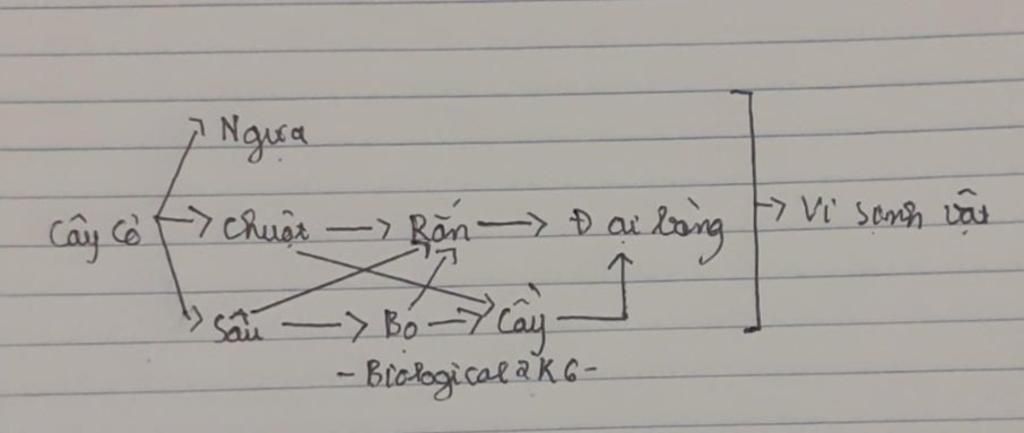 Ngựa
Cây cỏ Chuột Rắn Đại bàng Vi sanh vật
Sâu Bọ Cầy
- Biological 2K6 -